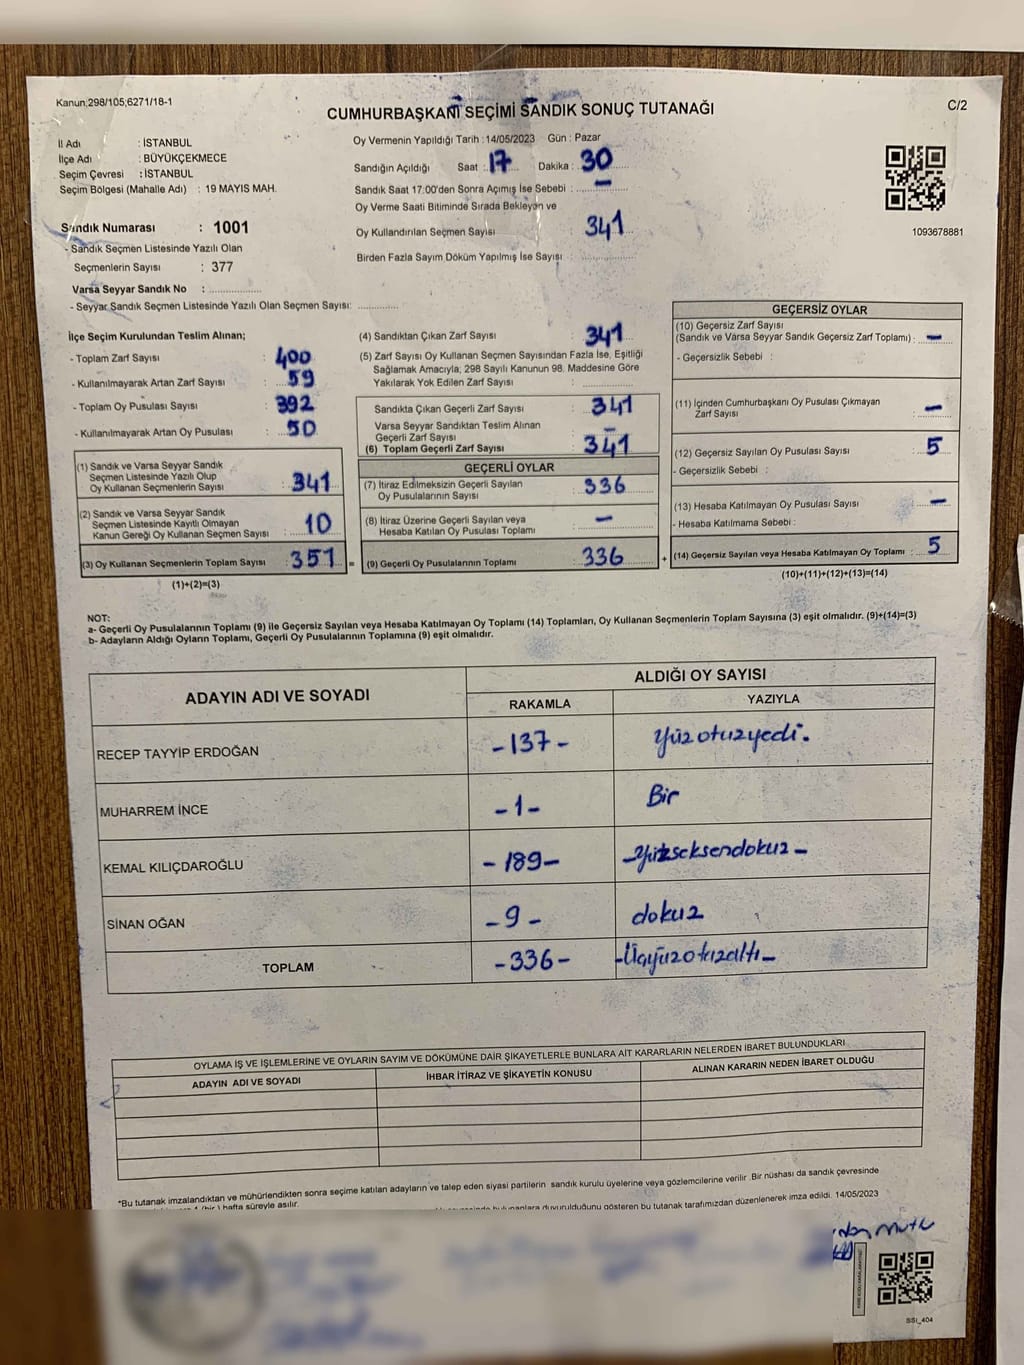 Kanun;298/105;6271/18-1
C/2
CUMHURBAŞKANI SEÇİMİ SANDIK SONUÇ TUTANAĞI
İl Adı : İSTANBUL
İlçe Adı : BÜYÜKÇEKMECE
Seçim Çevresi : İSTANBUL
Seçim Bölgesi (Mahalle Adı) : 19 MAYIS MAH.
Oy Vermenin Yapıldığı Tarih : 14/05/2023 Gün : Pazar
Sandığın Açıldığı Saat : 17 Dakika : 30
Sandık Saat 17:00'den Sonra Açımış İse Sebebi : –
Oy Verme Saati Bitiminde Sırada Bekleyen ve
Oy Kullandırılan Seçmen Sayısı 341
Birden Fazla Sayım Döküm Yapılmış İse Sayısı :
1093678881
Sandık Numarası : 1001
- Sandık Seçmen Listesinde Yazılı Olan
Seçmenlerin Sayısı : 377
Varsa Seyyar Sandık No :
- Seyyar Sandık Seçmen Listesinde Yazılı Olan Seçmen Sayısı:
İlçe Seçim Kurulundan Teslim Alınan;
- Toplam Zarf Sayısı : 400
- Kullanılmayarak Artan Zarf Sayısı : 59
- Toplam Oy Pusulası Sayısı : 392
- Kullanılmayarak Artan Oy Pusulası : 50
(1) Sandık ve Varsa Seyyar Sandık
Seçmen Listesinde Yazılı Olup
Oy Kullanan Seçmenlerin Sayısı : 341
(2) Sandık ve Varsa Seyyar Sandık
Seçmen Listesinde Kayıtlı Olmayan
Kanun Gereği Oy Kullanan Seçmen Sayısı : 10
(3) Oy Kullanan Seçmenlerin Toplam Sayısı : 351 =
(1)+(2)=(3)
(4) Sandıktan Çıkan Zarf Sayısı 341
(5) Zarf Sayısı Oy Kullanan Seçmen Sayısından Fazla İse, Eşitliği
Sağlamak Amacıyla; 298 Sayılı Kanunun 98. Maddesine Göre
Yakılarak Yok Edilen Zarf Sayısı :
Sandıkta Çıkan Geçerli Zarf Sayısı : 341
Varsa Seyyar Sandıktan Teslim Alınan
Geçerli Zarf Sayısı : –
(6) Toplam Geçerli Zarf Sayısı : 341
GEÇERLİ OYLAR
(7) İtiraz Edilmeksizin Geçerli Sayılan
Oy Pusulalarının Sayısı : 336
(8) İtiraz Üzerine Geçerli Sayılan veya
Hesaba Katılan Oy Pusulası Toplamı : –
(9) Geçerli Oy Pusulalarının Toplamı : 336 +
GEÇERSİZ OYLAR
(10) Geçersiz Zarf Sayısı
(Sandık ve Varsa Seyyar Sandık Geçersiz Zarf Toplamı) : –
- Geçersizlik Sebebi :
(11) İçinden Cumhurbaşkanı Oy Pusulası Çıkmayan
Zarf Sayısı : –
(12) Geçersiz Sayılan Oy Pusulası Sayısı : 5
- Geçersizlik Sebebi :
(13) Hesaba Katılmayan Oy Pusulası Sayısı : –
- Hesaba Katılmama Sebebi :
(14) Geçersiz Sayılan veya Hesaba Katılmayan Oy Toplamı : 5
(10)+(11)+(12)+(13)=(14)
NOT:
a- Geçerli Oy Pusulalarının Toplamı (9) ile Geçersiz Sayılan veya Hesaba Katılmayan Oy Toplamı (14) Toplamları, Oy Kullanan Seçmenlerin Toplam Sayısına (3) eşit olmalıdır. (9)+(14)=(3)
b- Adayların Aldığı Oyların Toplamı, Geçerli Oy Pusulalarının Toplamına (9) eşit olmalıdır.
ADAYIN ADI VE SOYADI ALDIĞI OY SAYISI
RAKAMLA YAZIYLA
RECEP TAYYİP ERDOĞAN -137- Yüzotuzyedi.
MUHARREM İNCE -1- Bir
KEMAL KILIÇDAROĞLU -189- -Yüzseksendokuz-
SİNAN OĞAN -9- dokuz
TOPLAM -336- -Üçyüzotuzaltı-
OYLAMA İŞ VE İŞLEMLERİNE VE OYLARIN SAYIM VE DÖKÜMÜNE DAİR ŞİKAYETLERLE BUNLARA AİT KARARLARIN NELERDEN İBARET BULUNDUKLARI
ADAYIN ADI VE SOYADI İHBAR İTİRAZ VE ŞİKAYETİN KONUSU ALINAN KARARIN NEDEN İBARET OLDUĞU
*Bu tutanak imzalandıktan ve mühürlendikten sonra seçime katılan adayların ve talep eden siyasi partilerin sandık kurulu üyelerine veya gözlemcilerine verilir .Bir nüshası da sandık çevresinde
1 (bir) hafta süreyle asılır.
bulunanlara duyurulduğunu gösteren bu tutanak tarafımızdan düzenlenerek imza edildi. 14/05/2023
SSI_404